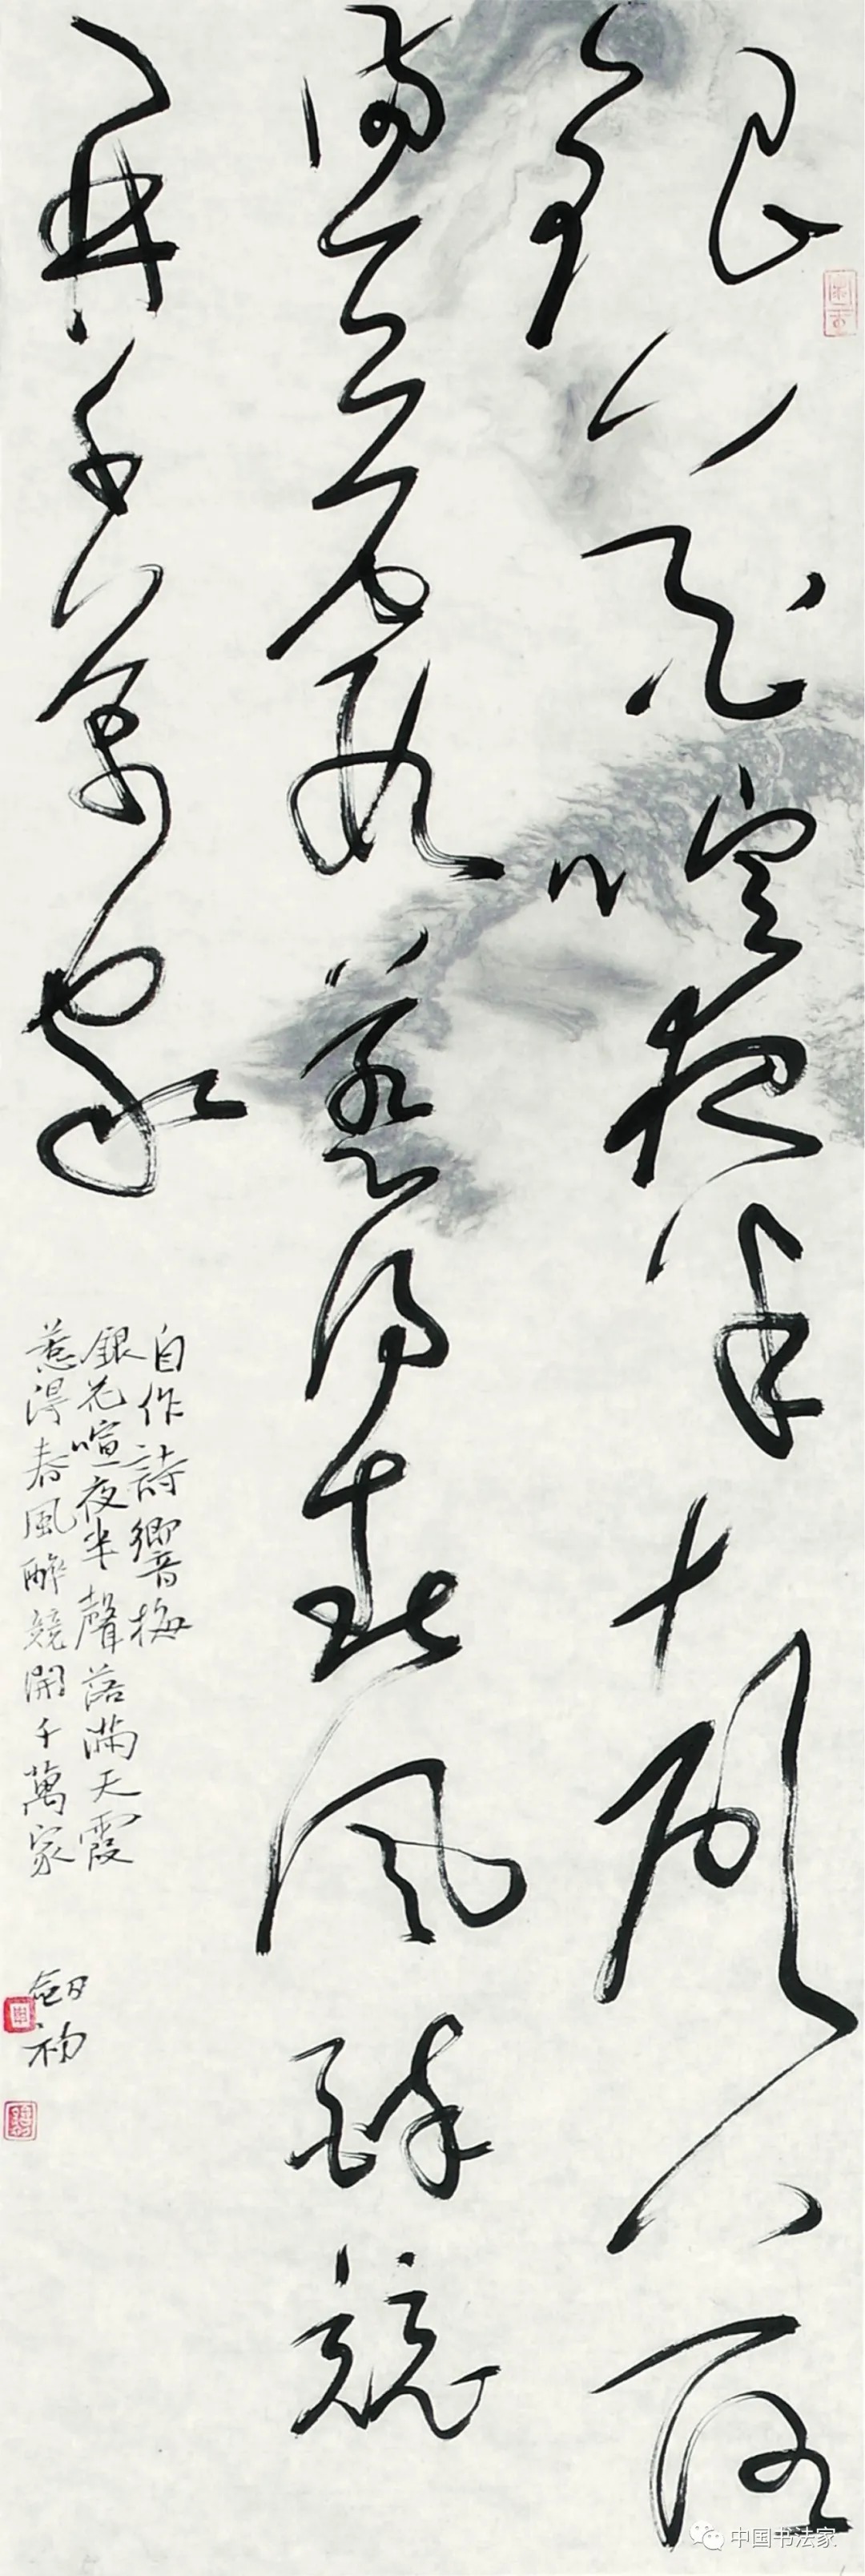 銀花喧夜半聲落
滿天霞惹得春風醉競
開千萬家
自作詩響梅
銀花喧夜半聲落滿天霞
惹得春風醉競開千萬家
劍初
中国书法家